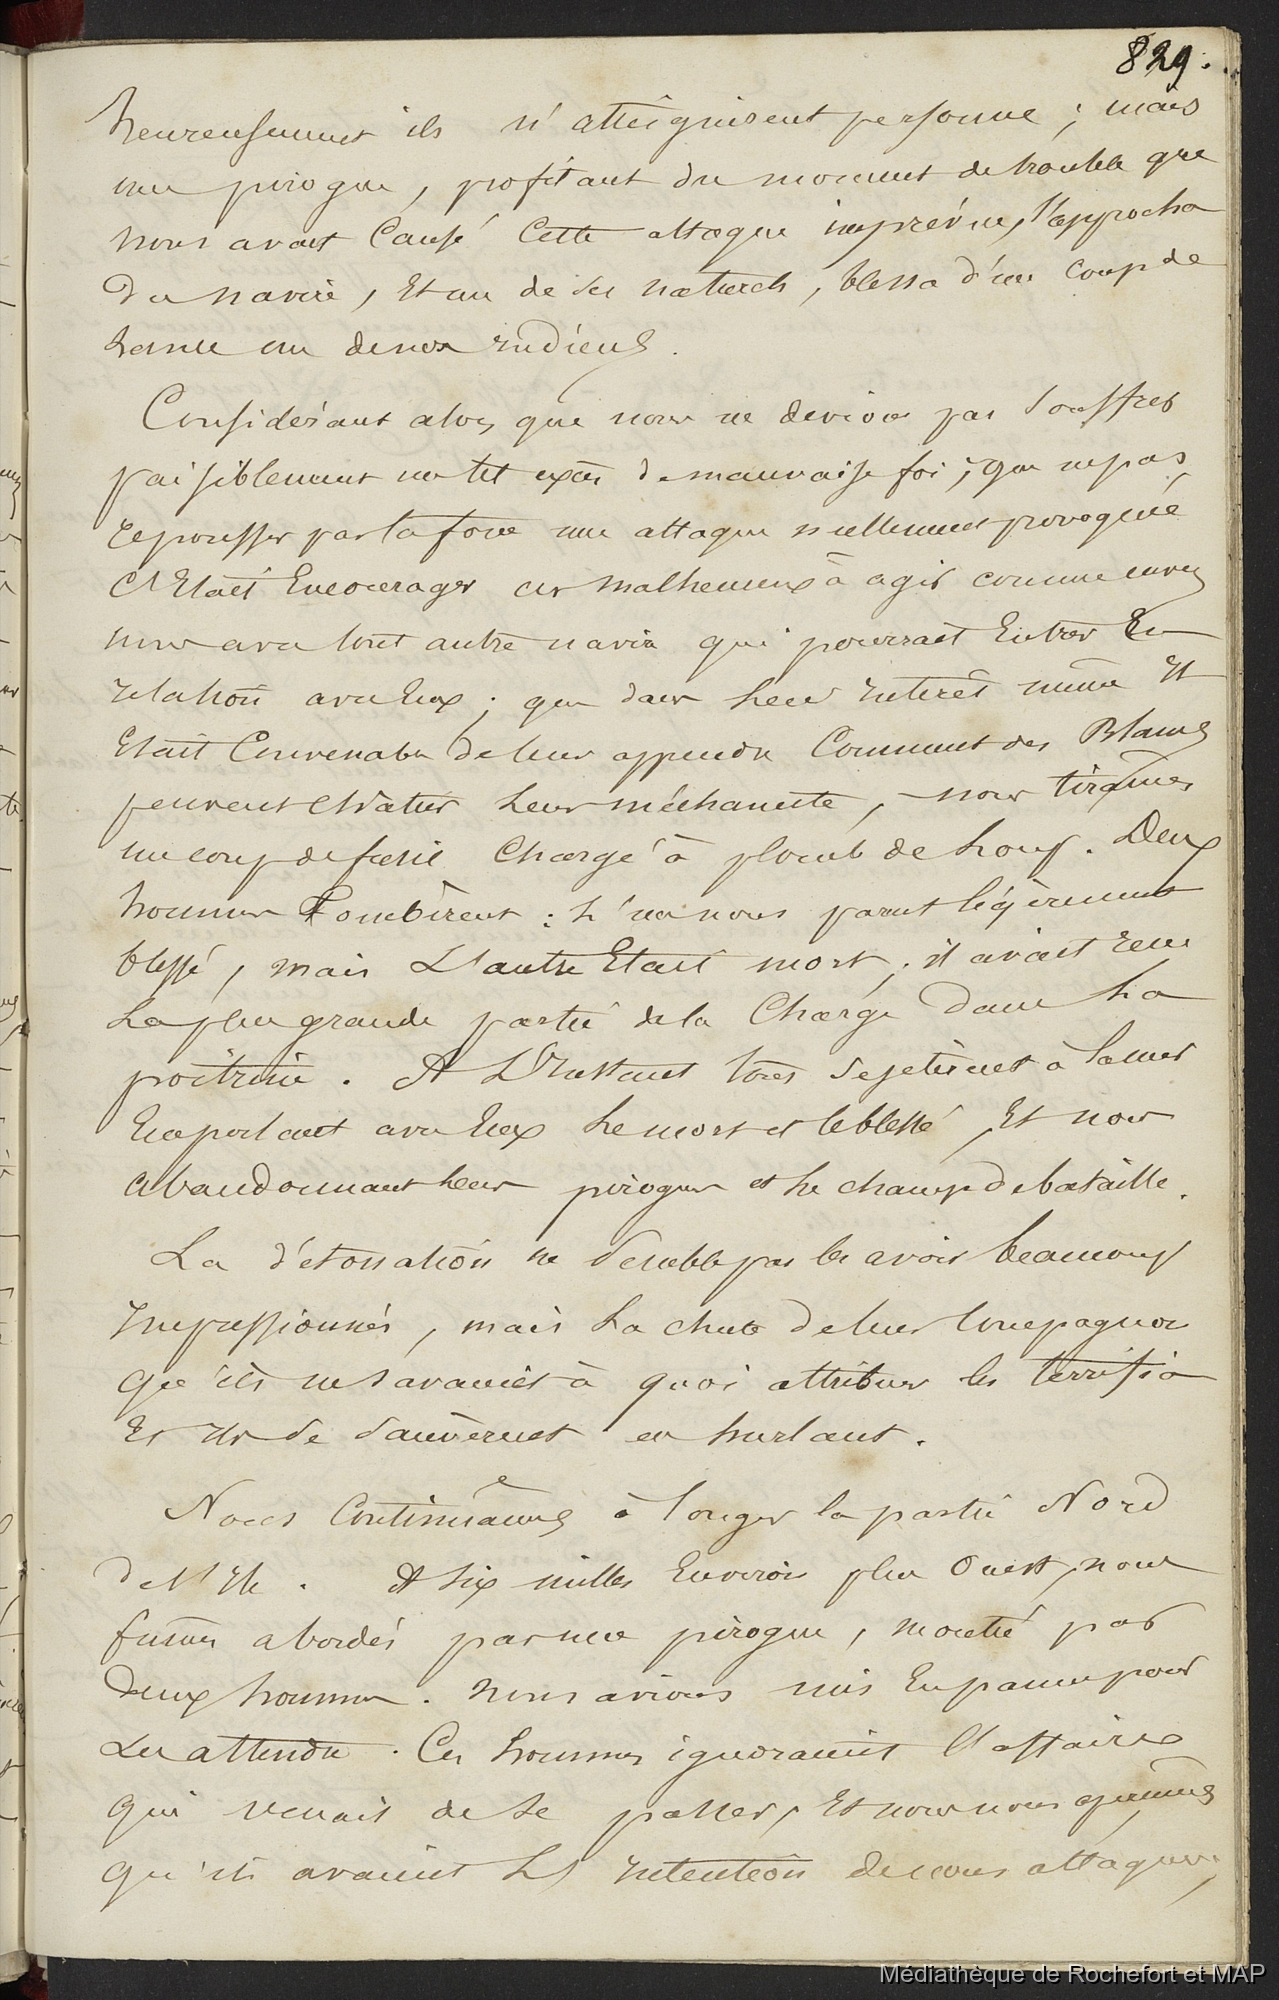 829.
heureusement ils n'atteignirent personne ; mais
une pirogue, profitant du moment de trouble que
nous avait Causé Cette attaque imprévue, s'approcha
du navire, Et un de ses naturels, blessa d'un Coup de
Lance un de nos Indiens.
Considérant alors que nous ne devions pas souffrir
paisiblement un tel excès de mauvaise foi ; que ne pas
repousser par la force une attaque nullement provoquée
C'Etait Encourager ces malheureux à agir comme envers
nous avec tout autre navire qui pourrait Entrer En
relation avec Eux ; que dans Leur Interêt même Il
Etait Convenable de leur apprendre Comment des Blancs
peuvent chatier Leur méchanceté, nous tirâmes
un coup de fusil Chargé à plomb de Loup. Deux
hommes Tombèrent : L'un nous parut légèrement
blessé, mais L'autre Etait mort ; il avait reçu
La plus grande partie de la Charge Dans La
poitrine. A L'Instant tous se jetèrent à la mer
Emportant avec Eux Le mort et le blessé, Et nous
abandonnant Leur pirogue et Le champ de bataille.
La détonation ne semble pas les avoir beaucoup
Impressionnés, mais La chute de leur Compagnon
qu'ils ne savaient à quoi attribuer les terrifia
Et Ils se sauvèrent en hurlant.
Nous Continuâmes à longer la partie Nord
de l'Ile. A Six milles Environ plus Ouest, nous
fûmes abordés par une pirogue, montée par
deux hommes. Nous avions mis En panne pour
Les attendre. Ces hommes ignoraient l'affaire
qui venait de se passer, Et nous nous
qu'ils avaient L'Intention de nous attaquer,
Médiathèque de Rochefort et MAP